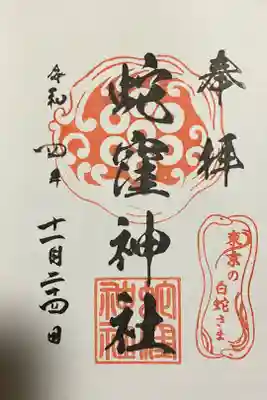 奉拝
東京の
白蛇さま
蛇窪神社
令和四年
十一月二十四日